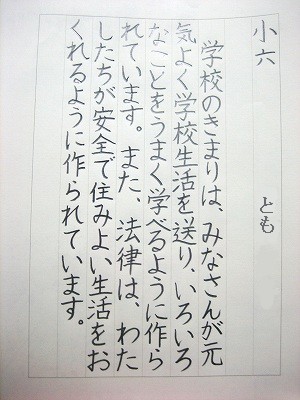 小六 とも
学校のきまりは、みなさんが元
気よく学校生活を送り、いろいろ
なことをうまく学べるように作ら
れています。また、法律は、わた
したちが安全で住みよい生活をお
くれるように作られています。